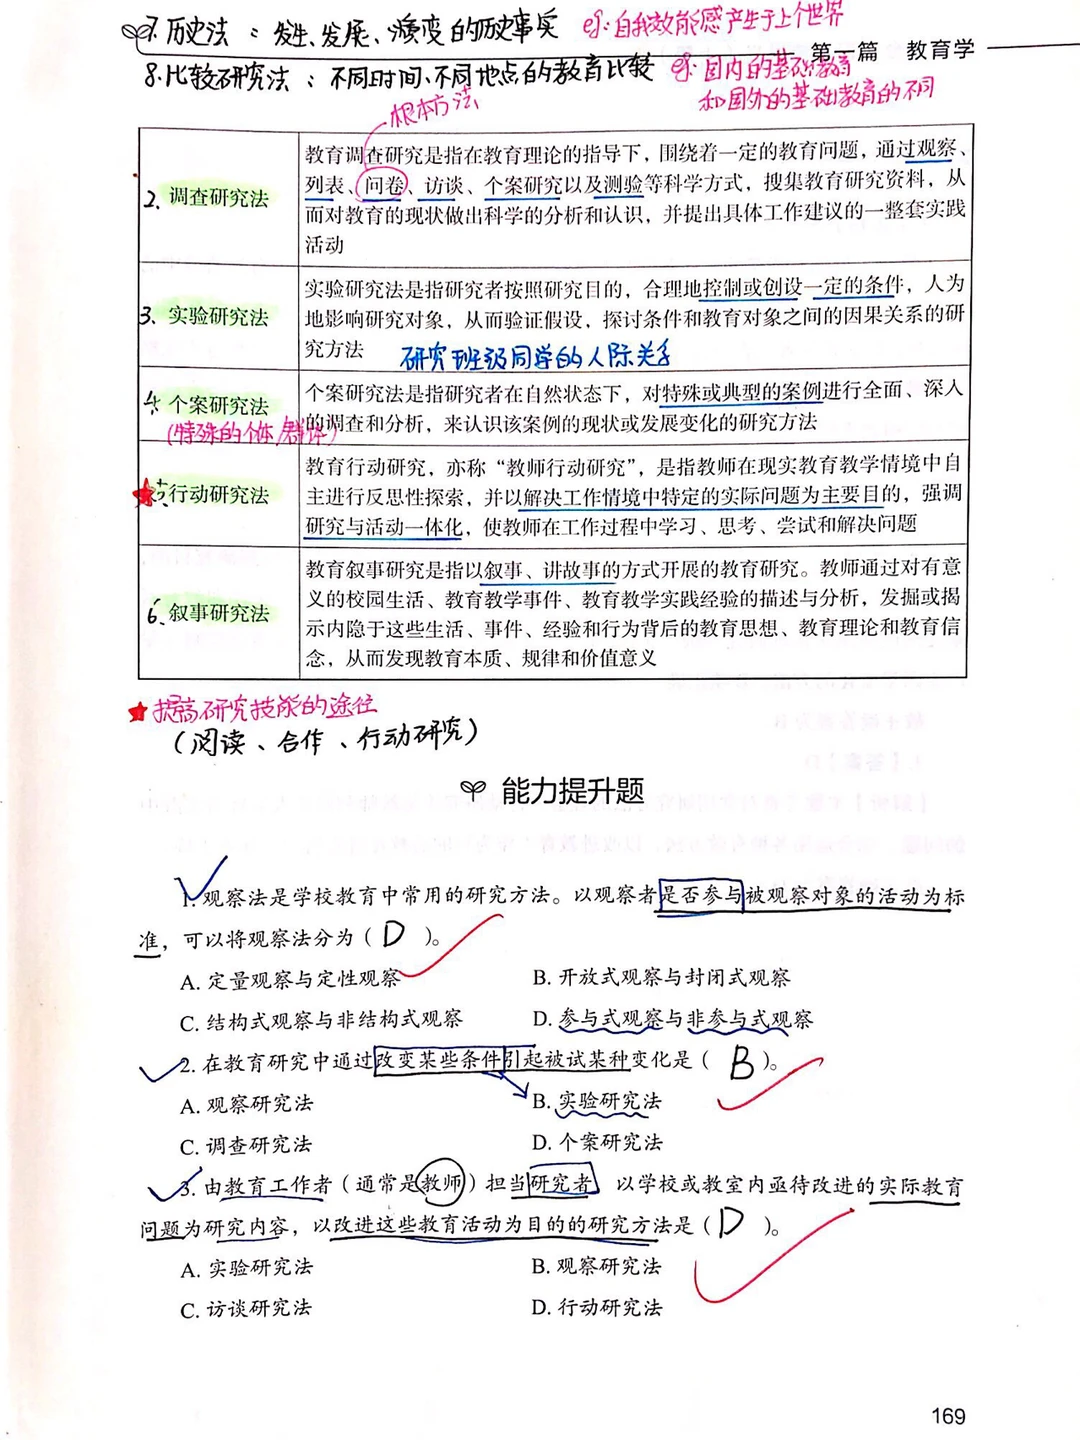 7. 历史法：发生、发展、演变的历史事实 eg: 自我效能感产生于上个世界
第一篇 教育学
8. 比较研究法：不同时间、不同地点的教育比较 eg: 国内的基础教育
和国外的基础教育的不同
根本方法
2. 调查研究法
教育调查研究是指在教育理论的指导下，围绕着一定的教育问题，通过观察、
列表、问卷、访谈、个案研究以及测验等科学方式，搜集教育研究资料，从
而对教育的现状做出科学的分析和认识，并提出具体工作建议的一整套实践
活动
3. 实验研究法
实验研究法是指研究者按照研究目的，合理地控制或创设一定的条件，人为
地影响研究对象，从而验证假设，探讨条件和教育对象之间的因果关系的研
究方法 研究班级同学的人际关系
4. 个案研究法
(特殊的个体/群体)
个案研究法是指研究者在自然状态下，对特殊或典型的案例进行全面、深入
的调查和分析，来认识该案例的现状或发展变化的研究方法
行动研究法
教育行动研究，亦称“教师行动研究”，是指教师在现实教育教学情境中自
主进行反思性探索，并以解决工作情境中特定的实际问题为主要目的，强调
研究与活动一体化，使教师在工作过程中学习、思考、尝试和解决问题
6. 叙事研究法
教育叙事研究是指以叙事、讲故事的方式开展的教育研究。教师通过对有意
义的校园生活、教育教学事件、教育教学实践经验的描述与分析，发掘或揭
示内隐于这些生活、事件、经验和行为背后的教育思想、教育理论和教育信
念，从而发现教育本质、规律和价值意义
★提高研究技能的途径
（阅读、合作、行动研究）
能力提升题
1. 观察法是学校教育中常用的研究方法。以观察者是否参与被观察对象的活动为标
准，可以将观察法分为（ D ）。
A. 定量观察与定性观察 B. 开放式观察与封闭式观察
C. 结构式观察与非结构式观察 D. 参与式观察与非参与式观察
2. 在教育研究中通过改变某些条件引起被试某种变化是（ B ）。
A. 观察研究法 B. 实验研究法
C. 调查研究法 D. 个案研究法
3. 由教育工作者（通常是教师）担当研究者，以学校或教室内亟待改进的实际教育
问题为研究内容，以改进这些教育活动为目的的研究方法是（ D ）。
A. 实验研究法 B. 观察研究法
C. 访谈研究法 D. 行动研究法
169